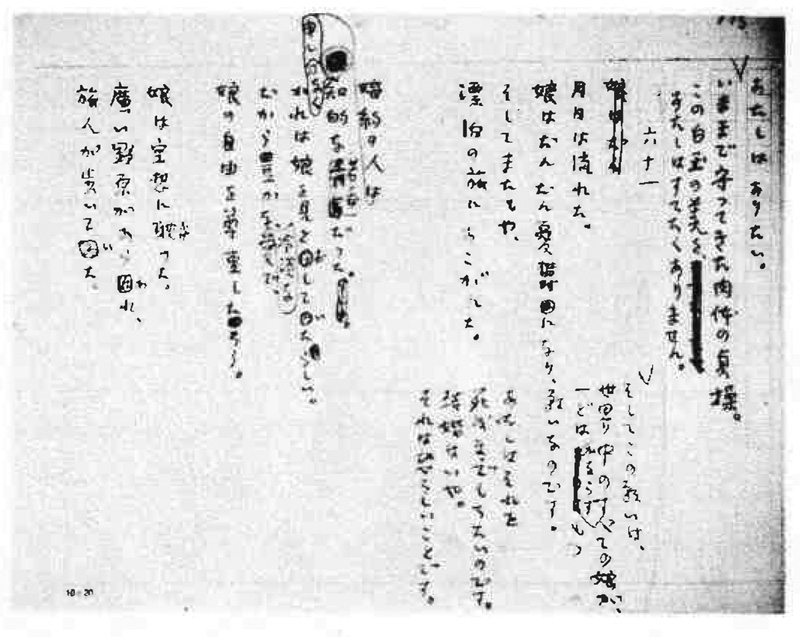 あたしはありたい。
いままで守ってきた肉体の貞操。
この白玉の美を、
あたしはすてたくありません。
そしてこの願いは、
世界中のすべての娘が、
一どはかならずもつ
願いなのです。
あたしはそれを
死ぬまでもちたいのです。
結婚はいや。
それは恐ろしいことです。
六十一
月日は流れた。
娘はだんだん憂鬱になり、
そしてまたもや、
漂泊の旅にあこがれた。
婚約の人は
申し分なく
知的な青年だった。
かれは娘を見とおしていたらしい。
だから
娘の自由を尊重した
娘は空想に耽った。
廣い野原があらわれ、
旅人が歩いていた。
10-20